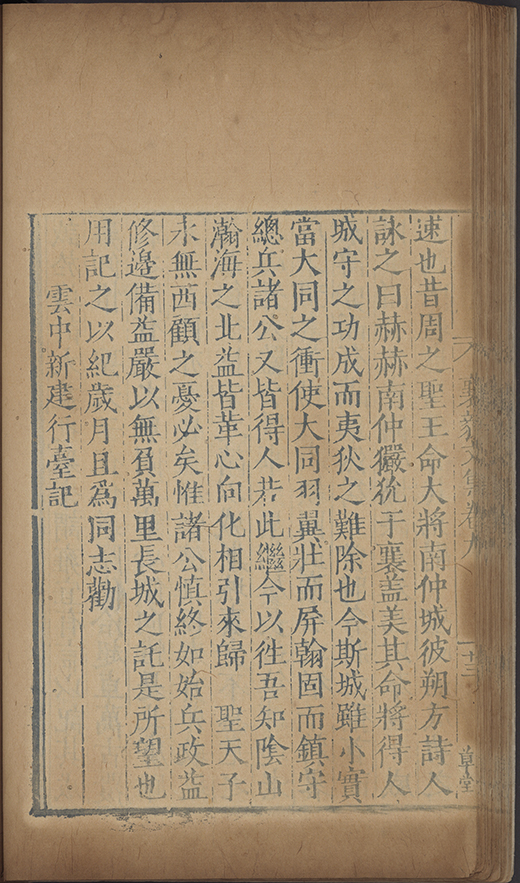 速也昔周之聖王命大將南仲城彼朔方詩人
詠之曰赫赫南仲玁狁于襄盖美其命將得人
城守之功成而夷狄之難除也今斯城雖小實
當大同之衝使大同羽翼壯而屏翰固而鎮守
總兵諸公又皆得人若此繼今以徃吾知陰山
瀚海之北益皆革心向化相引來歸 聖天子
永無西顧之憂必矣惟諸公慎終如始兵政益
修邊備益嚴以無負萬里長城之託是所望也
用記之以紀歲月且爲同志勸
雲中新建行臺記